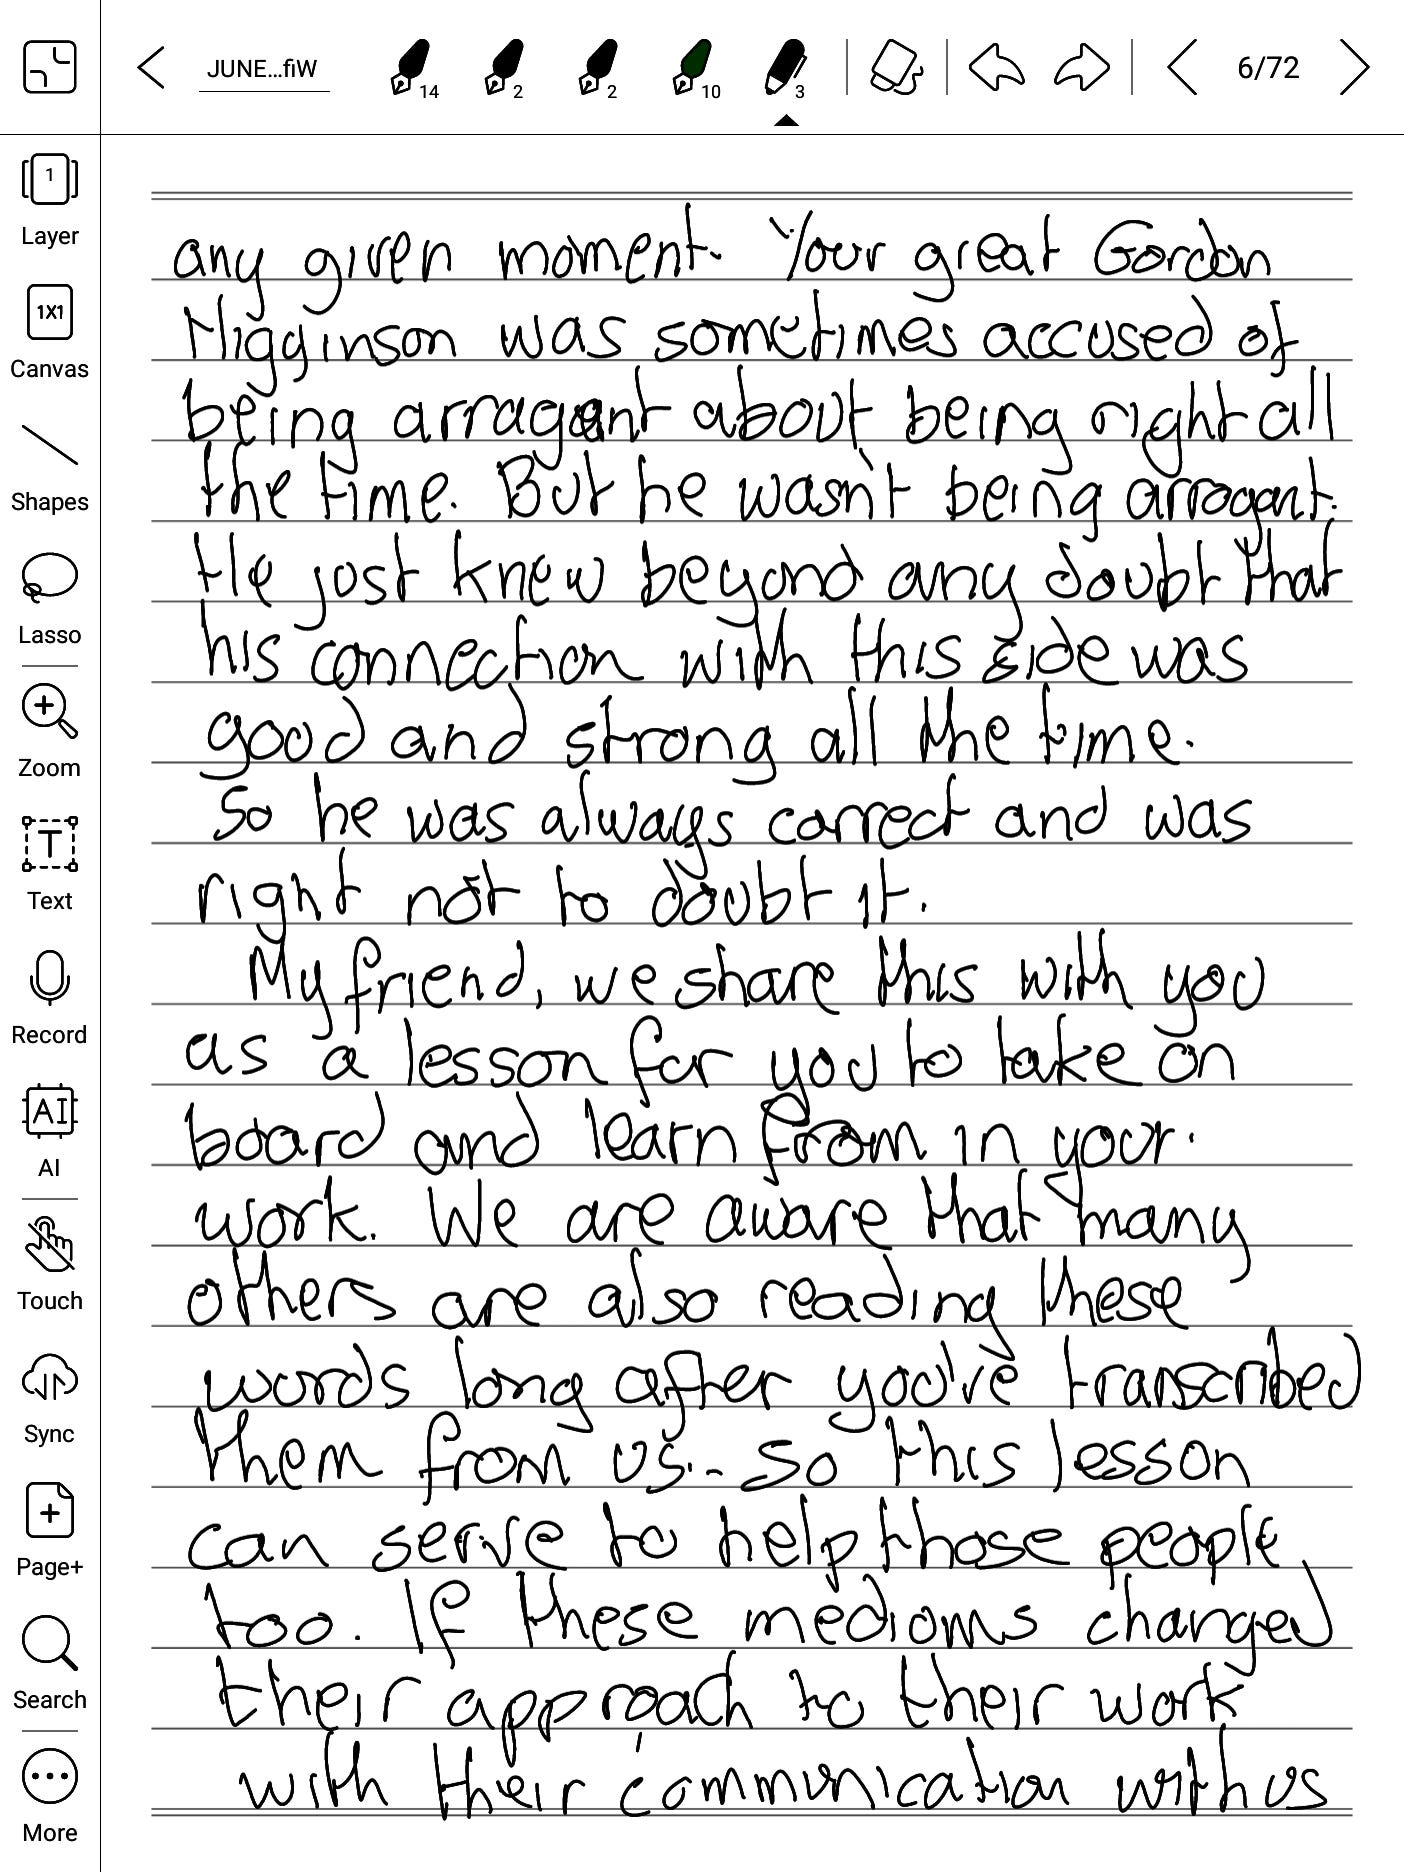 JUNE...fiW
14
2
2
10
3
6/72
1
Layer
1X1
Canvas
Shapes
Lasso
Zoom
T
Text
Record
AI
AI
Touch
Sync
Page+
Search
More
any given moment. Your great Gordon
Higginson was sometimes accused of
being arragant about being right all
the time. But he wasn't being arrogant.
He just knew beyond any doubt that
his connection with this side was
good and strong all the time.
So he was always correct and was
right not to doubt it.
My friend, we share this with you
as a lesson for you to take on
board and learn from in your
work. We are aware that many
others are also reading these
words long after you've transcribed
them from us. - So this lesson
can serve to help those people
too. If these mediums changed
their approach to their work
with their communication with us